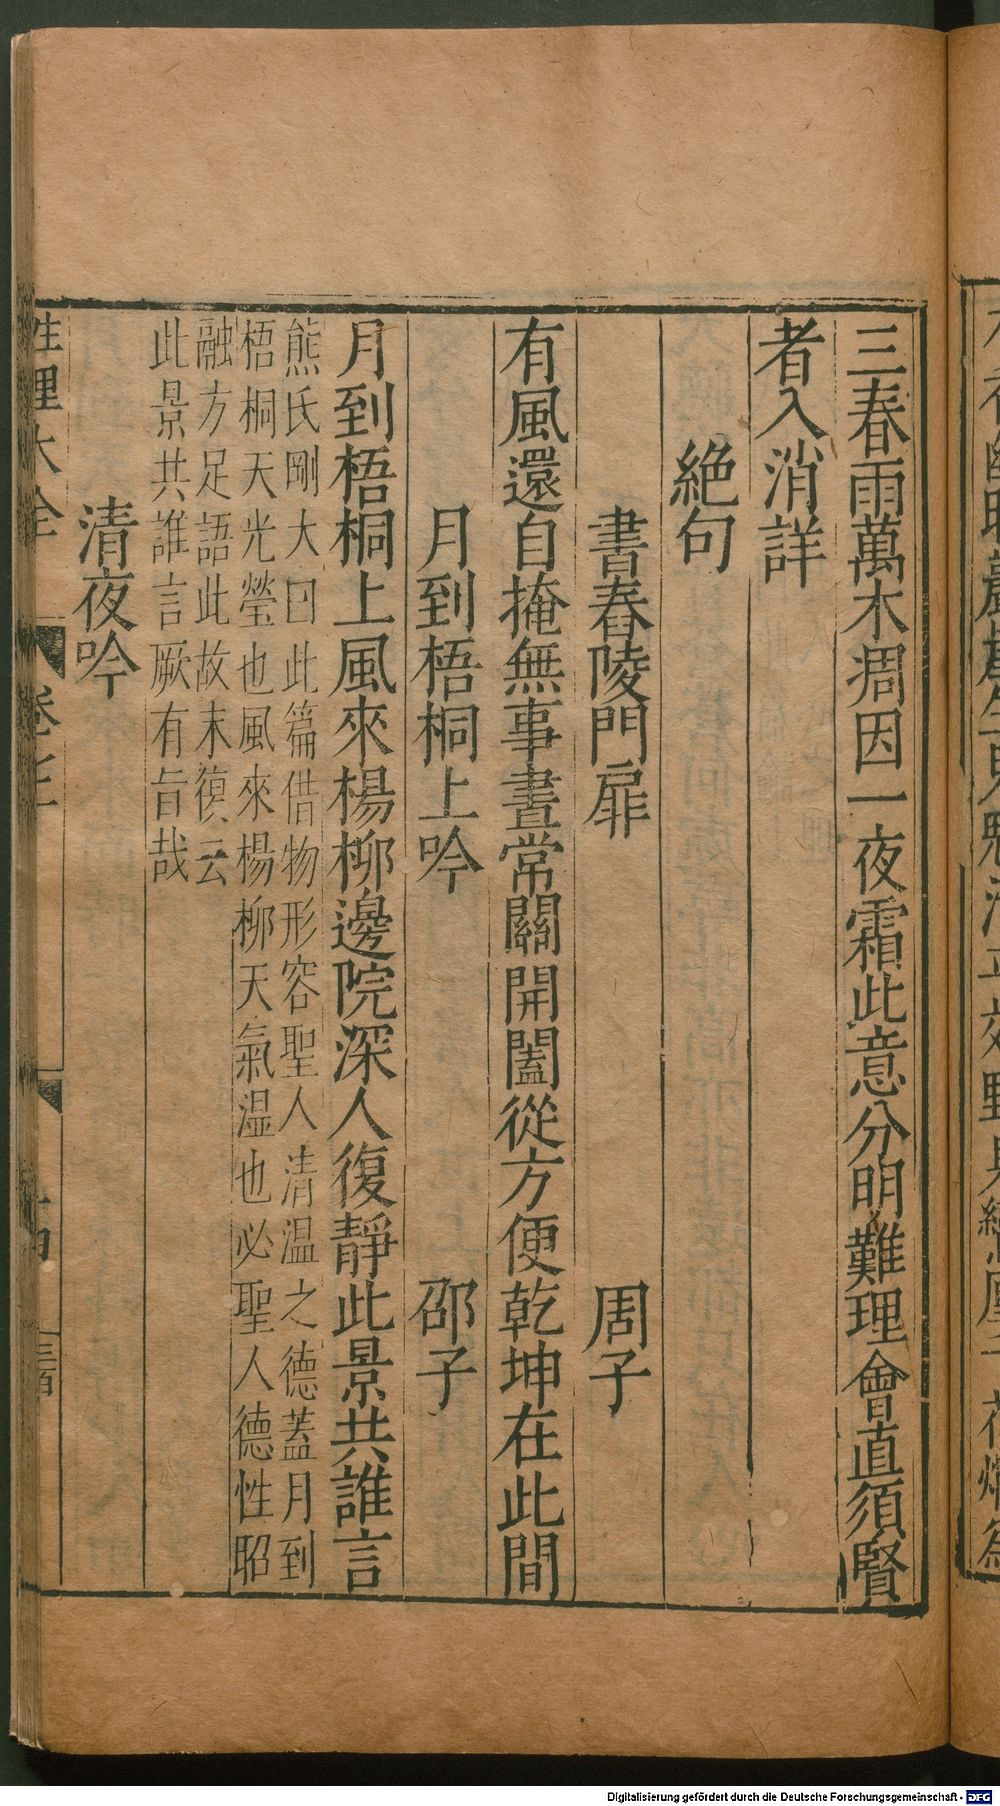 三春雨萬木凋因一夜霜此意分明難理會直須賢
者入消詳
絶句
書舂陵門扉 周子
有風還自掩無事晝常關開闔從方便乾坤在此間
月到梧桐上吟 邵子
月到梧桐上風來楊柳邊院深人復靜此景共誰言
熊氏剛大曰此篇借物形容聖人清温之德蓋月到
梧桐天光瑩也風來楊柳天氣温也必聖人德性昭
融方足語此故末復云
此景共誰言厥有旨哉
清夜吟
性理大全 卷七十
Digitalisierung gefördert durch die Deutsche Forschungsgemeinschaft - DFG